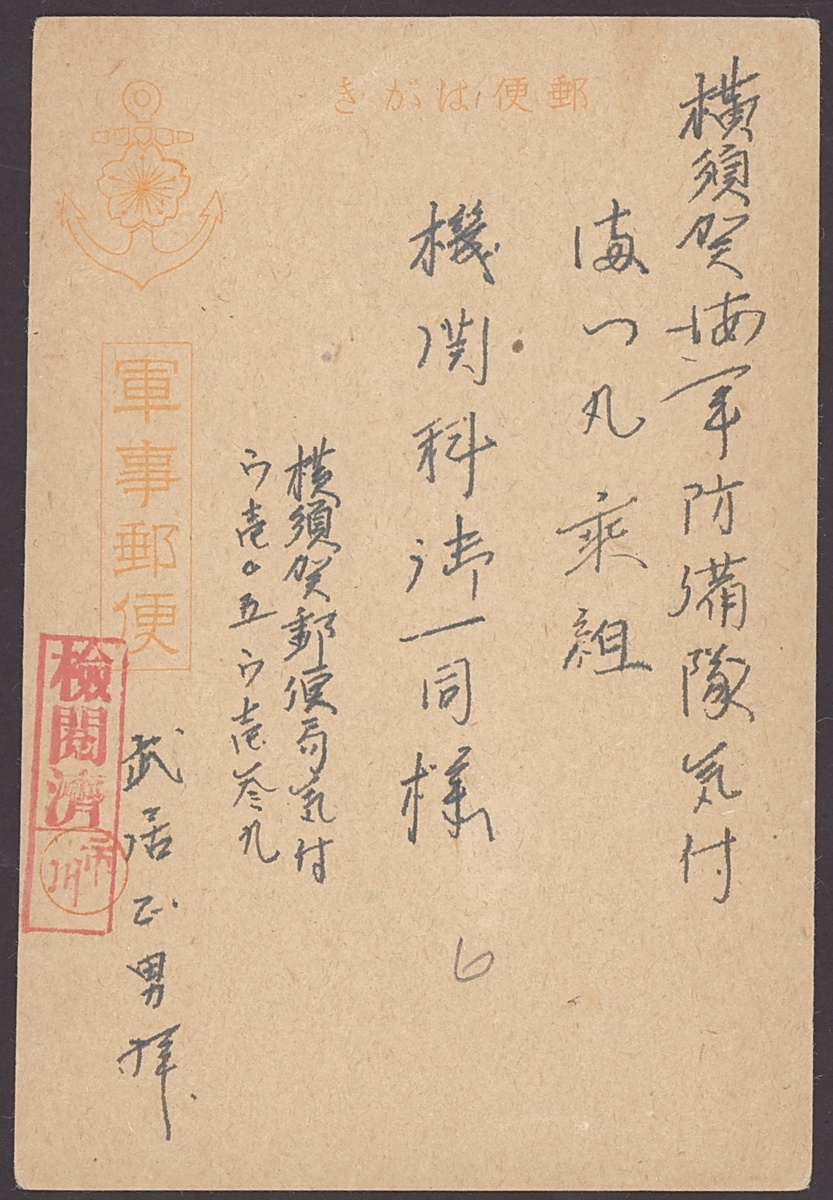 郵便はがき
横須賀海軍防備隊気付
海一丸乗組
機関科御一同様
横須賀郵便局気付
ウ壱〇五ウ壱参九
武居正男拝
軍事郵便
検閲済
市川
6